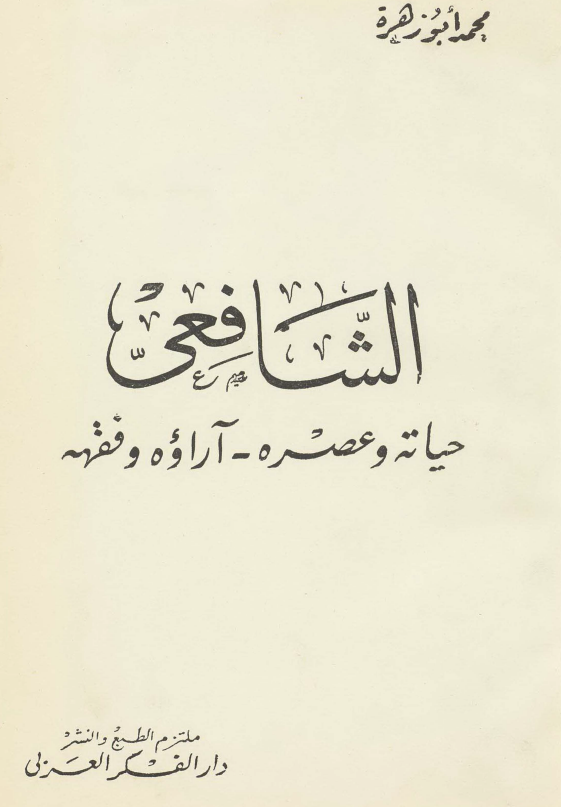 محمد أبو زهرة
الشَّافِعيّ
حياته وعصره - آراؤه وفقهه
ملتزم الطبع والنشر
دار الفكر العربي